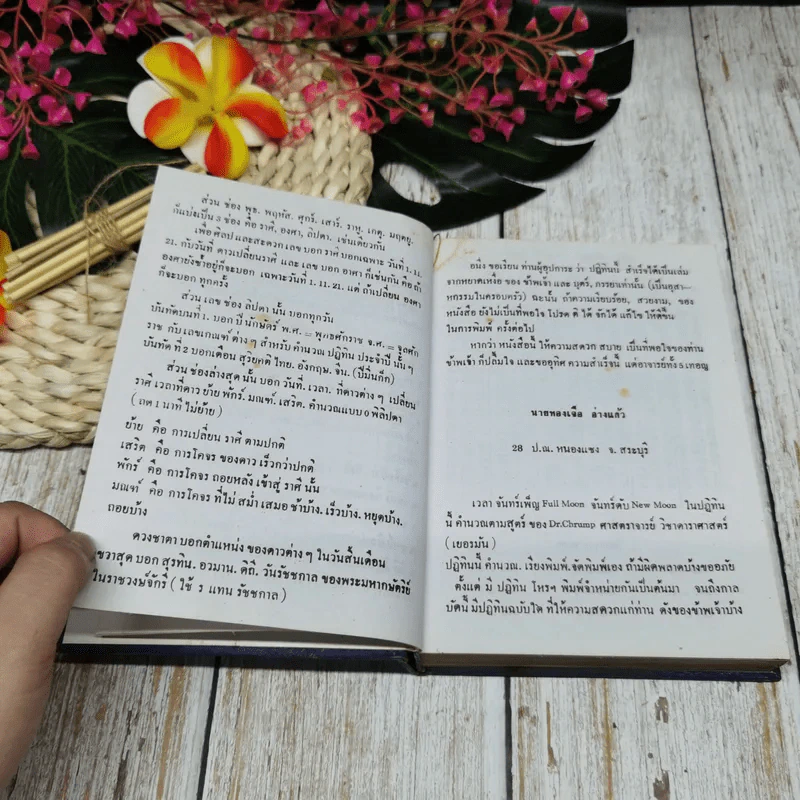 ส่วน ช่อง พุธ. พฤหัส. ศุกร์. เสาร์. ราหู. เกตุ. มฤตยู.
ก็แบ่งเป็น 3 ช่อง คือ ราศี, องศา, ลิปดา. เช่นเดียวกัน
เพื่อ ศิลป และสะดวก เลข บอก ราศี บอกเฉพาะ วันที่ 1. 11.
21. กับวันที่ ดาวเปลี่ยนราศี และ เลข บอก องศา ก็เช่นกัน คือ ถ้า
องศายังซ้ำอยู่ก็จะบอก เฉพาะวันที่ 1. 11. 21. แต่ ถ้าเปลี่ยน องศา
ก็จะบอก ทุกครั้ง
ส่วน เลข ช่อง ลิปดา นั้น บอกทุกวัน
บันทัดบนที่ 1. บอก ปี นักษัตร์ พ.ศ. = พุทธศักราช จ.ศ. = จุลศัก
ราช กับ เลขเกณฑ์ ต่าง ๆ สำหรับ คำนวณ ปฏิทิน ประจำปี นั้น ๆ
บันทัด ที่ 2 บอกเดือน สุริยคติ ไทย. อังกฤษ. จีน. (ปีมิ่นก๊ก)
ส่วน ช่องล่างสุด นั้น บอก วันที่. เวลา. ที่ดาวต่าง ๆ เปลี่ยน
ราศี เวลาที่ดาว ย้าย พักร์. มณฑ์. เสริด. คำนวณแบบ 0 พิลิปดา
( ถด 1 นาที ไม่ย้าย )
ย้าย คือ การเปลี่ยน ราศี ตามปกติ
เสริด คือ การโคจร ของดาว เร็วกว่าปกติ
พักร์ คือ การโคจร ถอยหลัง เข้าสู่ ราศี นั้น
มณฑ์ คือ การโคจร ที่ไม่ สม่ำ เสมอ ช้าบ้าง. เร็วบ้าง. หยุดบ้าง.
ถอยบ้าง
ดวงชาตา บอกตำแหน่ง ของดาวต่าง ๆ ในวันสิ้นเดือน
ขวาสุด บอก สุรทิน. อวมาน. ดิถี. วันรัชชกาล ของพระมหากษัตริย์
ในราชวงษ์จักรี ( ใช้ ร แทน รัชชกาล )
อนึ่ง ขอเรียน ท่านผู้อุปการะ ว่า ปฏิทินนี้ สำเร็จได้เป็นเล่ม
จากหยาดเหงื่อ ของ ข้าพเจ้า และ บุตร์, ภรรยาเท่านั้น (เป็นอุสา-
หกรรมในครอบครัว) ฉะนั้น ถ้าความเรียบร้อย, สวยงาม, ของ
หนังสือ ยังไม่เป็นที่พอใจ โปรด ติ ได้ จักได้ แก้ไข ให้ดีขึ้น
ในการพิมพ์ ครั้งต่อไป
หากว่า หนังสือนี้ ให้ความสดวก สบาย เป็นที่พอใจ ของท่าน
ข้าพเจ้า ก็ปลื้มใจ และขออุทิศ ความสำเร็จนี้ แด่อาจารย์ทั้ง 5 เทอญ
นายทองเจือ อ่างแก้ว
28 ป.ณ. หนองแซง จ. สระบุรี
เวลา จันทร์เพ็ญ Full Moon จันทร์ดับ New Moon ในปฏิทิน
นี้ คำนวณตามสูตร์ ของ Dr.Cbrump ศาสตราจารย์ วิชาดาราศาสตร์
(เยอรมัน)
ปฏิทินนี้ คำนวณ. เรียงพิมพ์. จัดพิมพ์เอง ถ้ามีผิดพลาดบ้างขออภัย
ตั้งแต่ มี ปฏิทิน โหรฯ พิมพ์จำหน่ายกันเป็นต้นมา จนถึงกาล
บัดนี้ มีปฏิทินฉบับใด ที่ให้ความสดวกแก่ท่าน ดังของข้าพเจ้าบ้าง